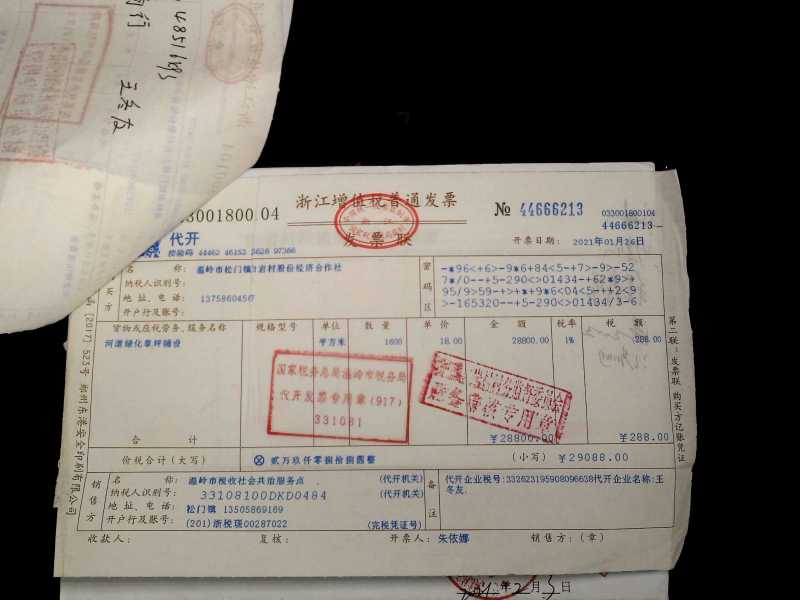 王冬友
浙江增值税普通发票
发票联
3001800104
№ 44666213
033001800104
44666213
代开
校验码 44462 46153 5628 97366
开票日期: 2021年01月26日
购买方
名 称:
股份经济合作社
纳税人识别号:
地址、电话: 1375860456
开户行及账号:
密码区
-*96<+6>-9*6+84<5-+7>-9>-52
7*/0--+5-290<>01434-+62*9>+
95/9>59-+>+*+9*6<04<5-++2<9
>-165320-+5-290<>01434/3-6
货物或应税劳务、服务名称 规格型号 单位 数量 单价 金额 税率 税额
河道绿化草坪铺设 平方米 1600 18.00 28800.00 1% 288.00
国家税务总局温岭市税务局
代开发票专用章(917)
331081
合 计 ¥28800.00 ¥288.00
价税合计(大写) ⊗ 贰万玖仟零捌拾捌圆整 (小写) ¥29088.00
销售方
名 称: 温岭市税收社会共治服务点 (代开机关)
纳税人识别号: 33108100DKD0484 (代开机关)
地址、电话: 松门镇 13505869169
开户行及账号: (201)浙税琐00287022 (完税凭证号)
备注
代开企业税号:332623195908096638代开企业名称:王
冬友.
收款人: 复核: 开票人: 朱依娜 销售方:(章)
第二联:发票联 购买方记账凭证
〔2017〕523号 郑州东港安全印刷有限公司
年2月3日